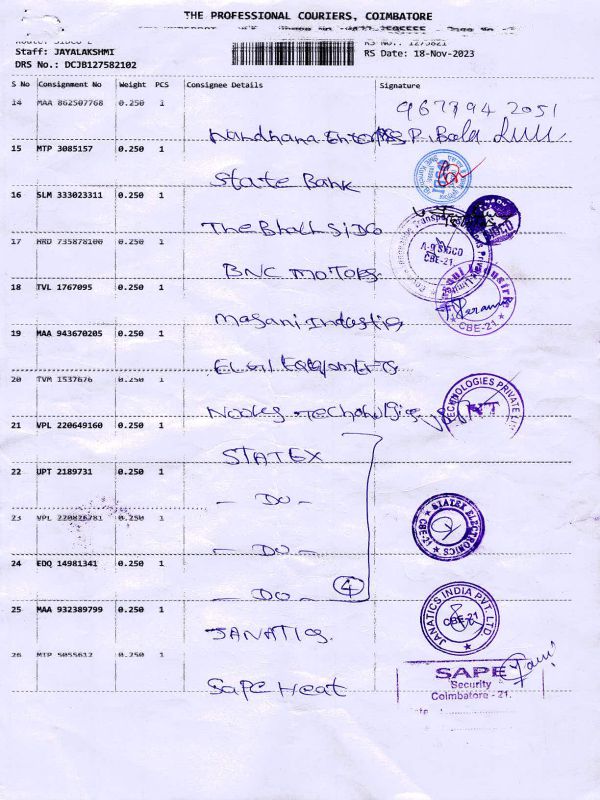 THE PROFESSIONAL COURIERS, COIMBATORE
Staff: JAYALAKSHMI
RS No.: 1275821
DRS No.: DCJB127582102
RS Date: 18-Nov-2023
S No Consignment No Weight PCS Consignee Details Signature
14 MAA 862507768 0.250 1
9677942051
Nandhana P. Bala
15 MTP 3085157 0.250 1
State Bank
16 SLM 333023311 0.250 1
The Bhall SIDCO
17 HRD 735878100 0.250 1
A-9 SIDCO
CBE-21
SIDCO
BNC Motors
18 TVL 1767095 0.250 1
CBE-21
Masani Industris
19 MAA 943670205 0.250 1
Elgi Equipments
20 TVM 1537676 0.250 1
TECHNOLOGIES PRIVATE
21 VPL 220649160 0.250 1
STATEX
22 UPT 2189731 0.250 1
- DO -
23 VPL 220826781 0.250 1
STATEX ELECTRONICS
CBE-21
- DO -
24 EDQ 14981341 0.250 1
- DO - 4
25 MAA 932389799 0.250 1
JANATICS INDIA PVT. LTD
CBE-21
JANATICS.
26 MTP 5055612 0.250 1
SAPE
Security
Coimbatore - 21.
Sape Heat